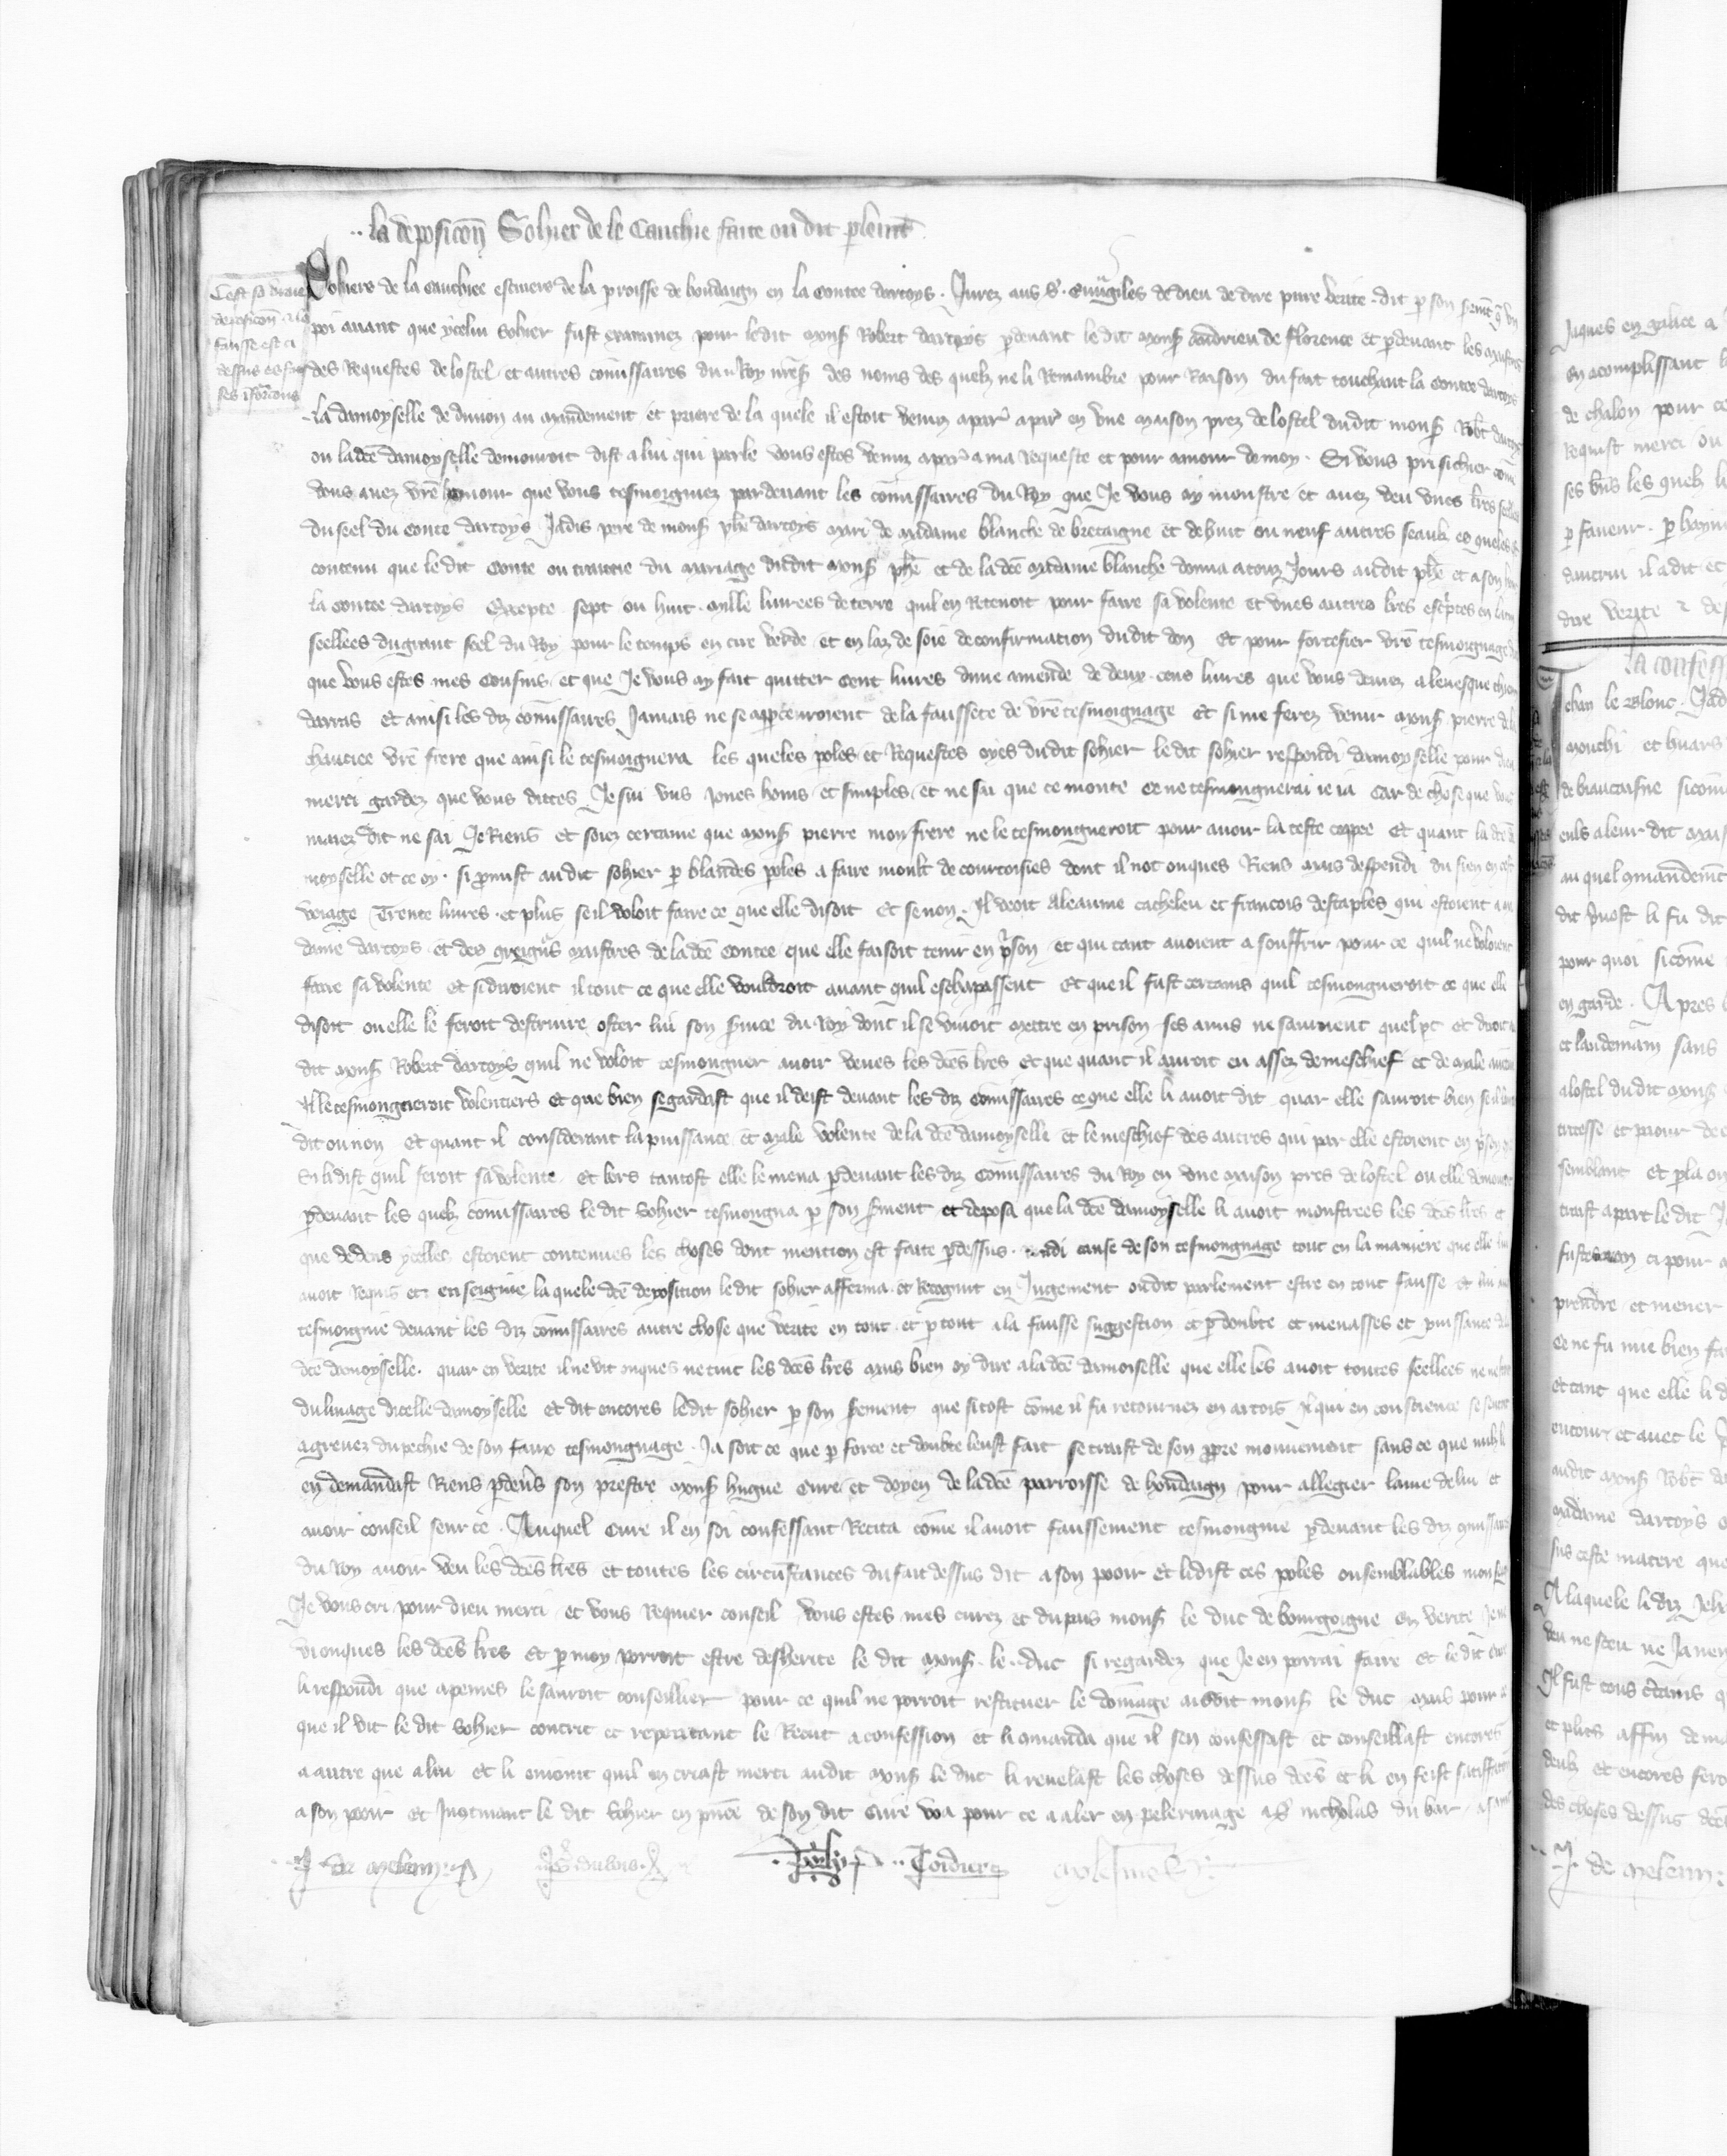 la deposicōn Sohier de le Cauchie faite ou dit plemt
Cest sa vraie
deposicōn & la
fausse est ci
dessus es
ses
Sohiers de la Cauchiee escuiers de la proisse de hondaign en la Contee dartoys . Jurez aus s̄ . euūgiles de dieu de dire pure verite . dit p son semt q̄ un
poi avant que ycelui Sohier fust examinez pour ledit mons̄ Robert dartoys pdevant le dit mons̄ Andrieu de Florence et pdevant les maistres
des Requestes de lostel et autres cōmissaires du Roy nr̄es̄ des noms des quelz ne li Remambre pour Raison du fait touchant la Contee dartoys
la damoyselle de divion au mandement et priere de la quele il estoit venuz a par̄ en une maison prez de lostel dudit mons̄ Robt dartoys
ou ladc̄e damoyselle demouroit dist a lui qui parle vous estes venuz a par̄ a ma Requeste et pour amour de moy . Si vous pri si chier com
vous avez vr̄e honour que vous tesmoigniez pardevant les cōmissaires du Roy que Je vous ay monstre et avez veu unes lr̄es seellees
du seel du Conte dartoys Jadis pere de mons̄ phē dartoys mari de madame blanche de bretaigne et de huit ou neuf autres seaulx es queles est
contenu que le dit Conte ou traittie du mariage dudit mons̄ phē et de la dc̄e madame blanche donna a touz Jours audit phē et a son hoir
la Contee dartoys Excepte sept ou huit mille livrees de terre quil en Retenoit pour faire sa volente et unes autres lr̄es escptes en latin
seellees du grant seel du Roy pour le temps en cire verde et en laz de soie de confirmation dudit don Et pour fortefier vr̄e tesmoignage
que vous estes mes Cousins et que Je vous ay fait quitter cent livres dune amende de deux cens livres que vous deviez a levesque
darras et ainsi les diz cōmissaires Jamais ne se appcevroient de la faussete de vr̄e tesmoignage et si me ferez venir mons̄ pierre de la
chauciee vr̄e frere que ainsi le tesmoignera les queles poles et Requestes oyes dudit sohier le dit sohier respondi damoyselle pour dieu
merci gardez que vous dittes Je sui uns Jones homs et simples et ne sai que ce monte ce ne tesmongnerai ie ia Car de chose que vous
maiez dit ne sai Je Riens et soiez certaine que mons̄ pierre mon frere ne le tesmongneroit pour avoir la teste coppee Et quant la dc̄e da
moyselle ot ce oy . si pmist audit sohier p blandes poles a faire moult de courtoisies dont il not onques Riens mais despendi du sien en cest
veiage Trente livres et plus se il voloit faire ce que elle disoit Et se non . Il veoit Aleaume cachelen et francois destaples qui estoient a ma
dame dartoys et des greign̄s maistres de la dc̄e Contee que elle faisoit tenir en pson et qui tant avoient a souffrir pour ce quil ne voloient
faire sa volente et si diroient il tout ce que elle vouldroit avant quil eschapassent Et que il fust certains quil tesmongneroit ce que elle
disoit ou elle le feroit destruire oster lui son s̄vice du Roy dont il se vivoit mettre en prison ses amis ne sauroient quel pt et diroit a
dit mons̄ Robert dartoys quil ne voloit tesmongner avoir veues les dc̄es lr̄es et que quant il auroit eu assez de meschief et de male aven
il le tesmongneroit volentiers Et que bien se gardast que il deist devant les diz cōmissaires ce que elle li avoit dit quar elle sauroit bien se il lauroit
dit ou non Et quant il considerant la puissance et male volente de la dc̄e damoyselle et le meschief des autres qui par elle estoient en pson
Si li dist quil feroit sa volente . et lors tantost elle le mena pdevant les diz cōmissaires du Roy en une maison pres de lostel ou elle demouroit
pdevant les quelz cōmissaires le dit Sohier tesmongna p son s̄ment et deposa que la dc̄e damoyselle li avoit monstrees les dc̄es lr̄es et
que dedens ycelles estoient contenues les choses dont mention est faite pdessus . rendi cause de son tesmongnage tout en la maniere que elle lui
avoit Requis et enseignie la quele dc̄e deposition le dit sohier afferma et Recognut en Jugement oudit parlement estre en tout fausse et lui avoir
tesmoignie devant les diz cōmissaires autre chose que verite en tout et p tout a la fausse suggestion et p doubte et menasses et puissance de la
dc̄e damoyselle . quar en verite il ne vit onques ne tint les dc̄es lr̄es mais bien oy dire a la dc̄e damoiselle que elle les avoit toutes seellees ne ne
du linage dicelle damoyselle Et dit encores ledit sohier p son s̄ement que si tost cōme il fu retournez en artois Il qui en conscience se sentoit
agrevez du pechie de son faux tesmongnage . Ja soit ce que p force et doubte leust fait se traist de son ppre mouvement sans ce que nuls li
en demandast Riens pdevs̄ son prestre mons̄ hugue Cure et doyen de la dc̄e parroisse de hondaign pour allegier lame de lui et
avoir conseil seur ce . Auquel Cure il en soi confessant Recita cōme il avoit faussement tesmongnie pdevant les diz cōmissaires
du Roy avoir veu les dc̄es lr̄es et toutes les circūstances du fait dessus dit a son pooir et li dist ces poles ou semblables mons̄
Je vous cri pour dieu merci et vous Requier conseil vous estes mes curez et du pais mons̄ le duc de bourgoigne en verite Je ne
vi onques les dc̄es lr̄es et p moy porroit estre desherite le dit mons̄ le duc si regardez que Je en porrai faire et le dit Cure
li respondi que apeines le sauroit conseillier pour ce quil ne porroit restituer le dōmage audit mons̄ le duc mais pour ce
que il vit le dit Sohier contrit et repentant le Recut a confession et li cōmanda que il sen confessast et conseillast encores
a autre que a lui et li enioint quil en criast merci audit mons̄ le duc li revelast les choses dessus dc̄es et li en feist satisfacion
a son pooir et Incontinant le dit Sohier en pn̄ce de son dit Cure voa pour ce a aler en pelerinage a s̄ nicholas du bar
J . de meleun .
Jaques en galice a
en acomplissant
de chalon pour ce
Requist merci ou
ses lr̄es les quelz li
p faveur . p hayne
dautrui il a dit et
dire verite & de
la confess
Jehan le blonc . Jad
mouchi et huars
de biaucaisne sicom
euls a leur dit
au quel cōmandemt
dit pvost li fu dit
pour quoi sicōme
en garde . Apres
et landemain sans
a lostel dudit mons̄
semblant et p la ou
traist apart le dit J
ci pour
prendre et mener
ce ne fu mie bien fa
et tant que elle li d
entour et avec le
audit mons̄ Robt
madame dartoys
sus ceste matere que
A laquele li diz Jeh
veu ne sceu ne Ja nen
Il fust tous certains q
et plus affin de
deulx et encores fero
des choses dessus dc̄es
J . de meleun